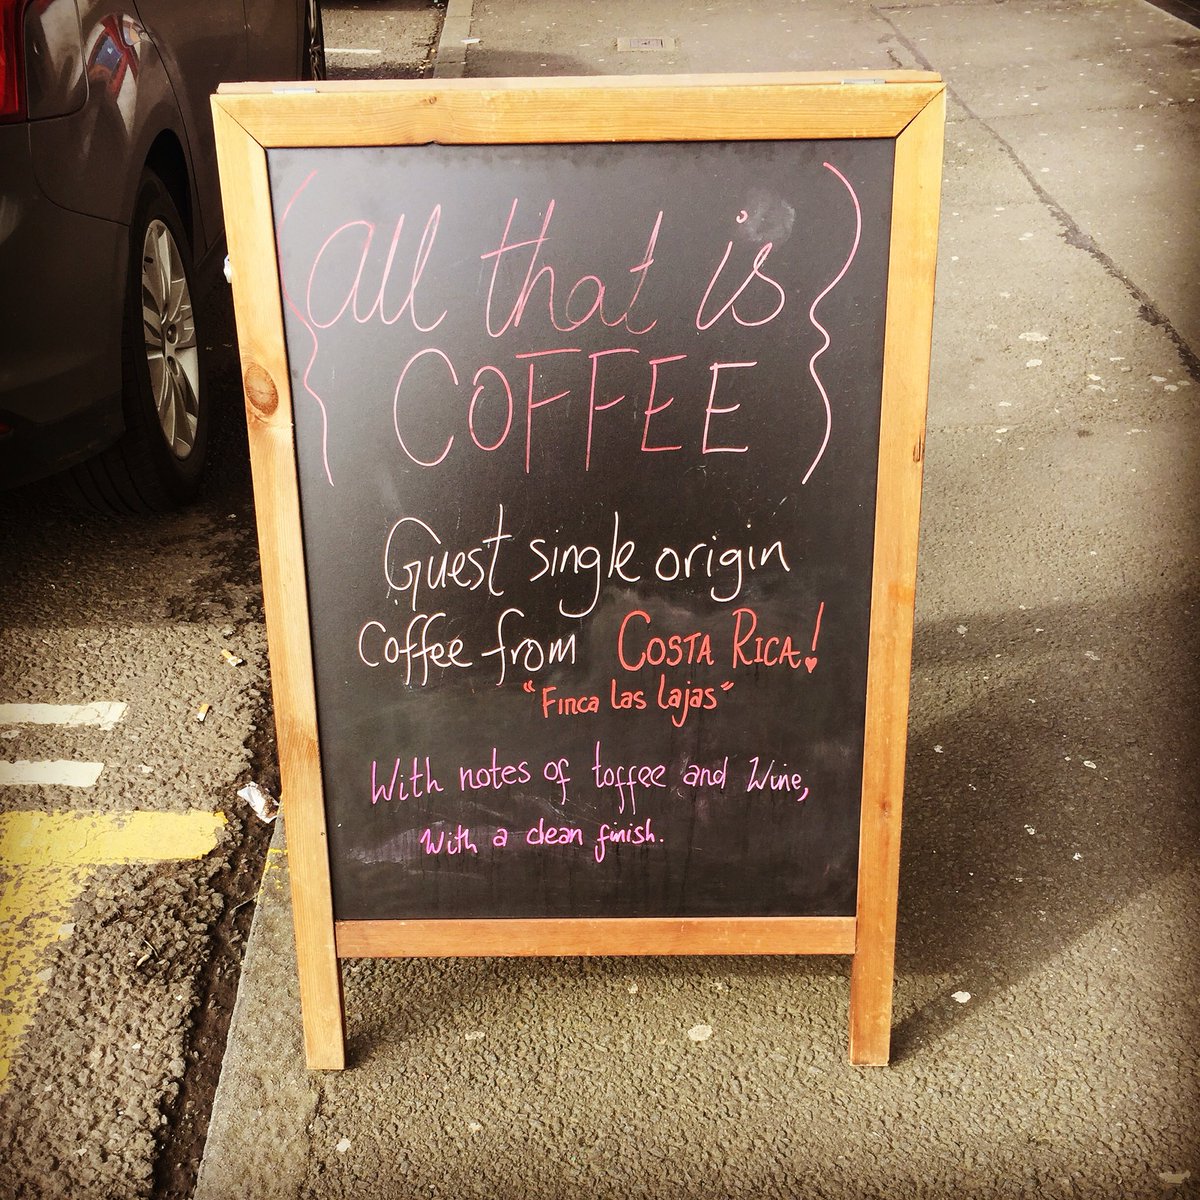 {all that is}
COFFEE
Guest single origin
Coffee from COSTA RICA!
"Finca Las Lajas"
With notes of toffee and Wine,
With a clean finish.